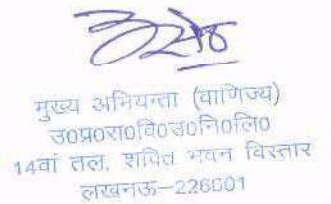 मुख्य अभियन्ता (वाणिज्य)
उ0प्र0रा0वि0उ0नि0लि0
14वां तल, शक्ति भवन विस्तार
लखनऊ–226001